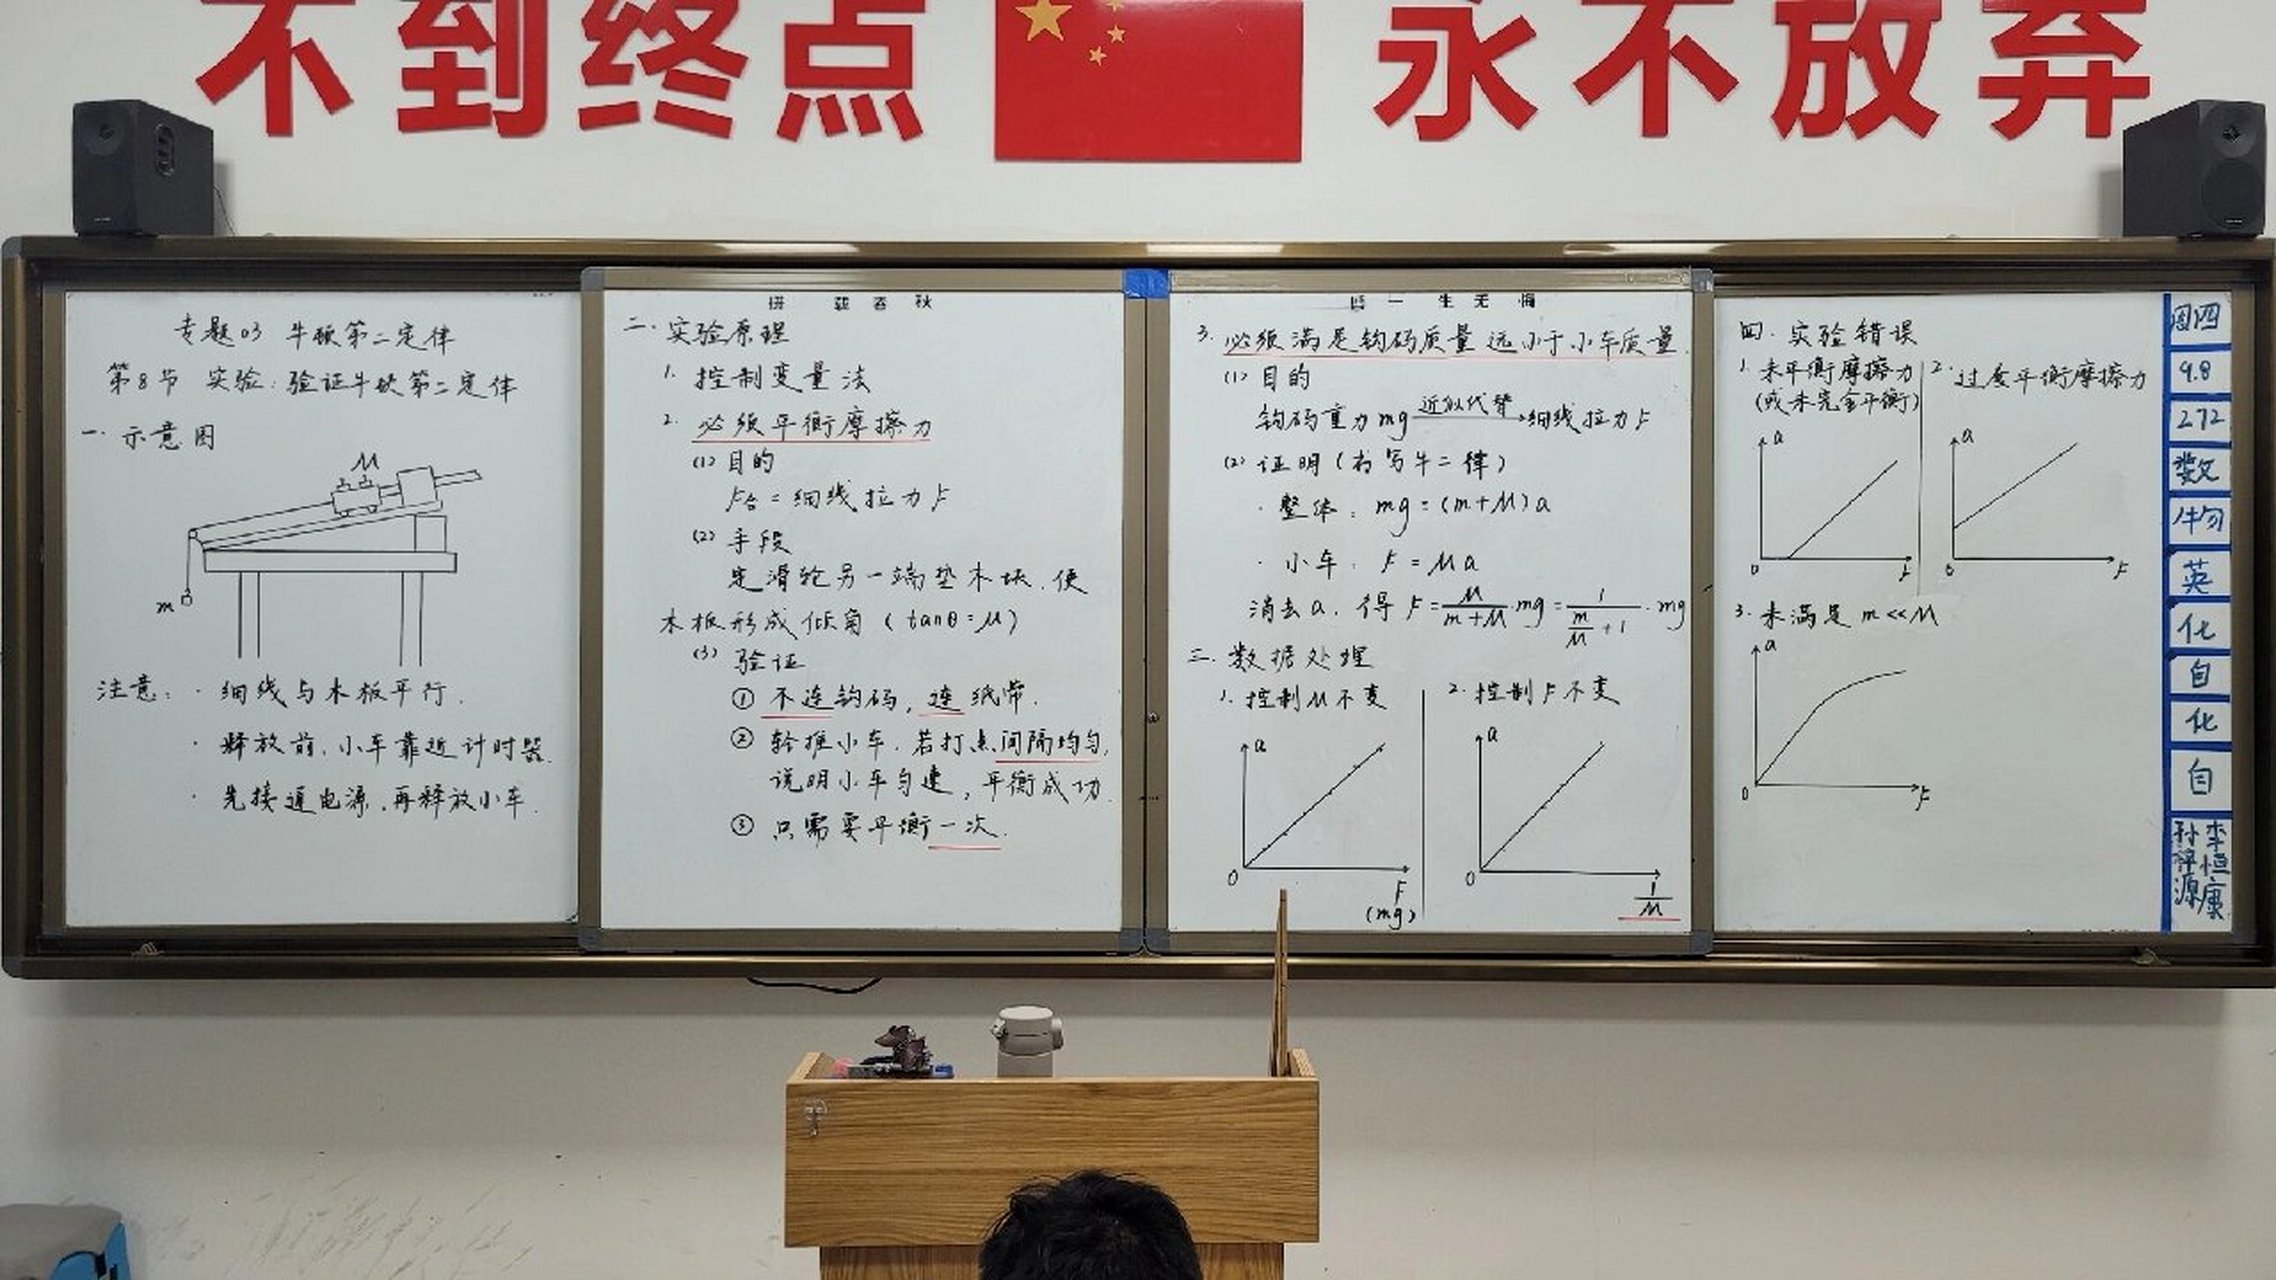 不到终点 永不放弃
拼 载春秋
一生无悔
专题03 牛顿第二定律
第8节 实验:验证牛顿第二定律
一. 示意图
M
m
注意: · 细线与木板平行.
· 释放前,小车靠近计时器.
· 先接通电源,再释放小车.
二. 实验原理
1. 控制变量法
2. 必须平衡摩擦力
(1) 目的
F合 = 细线拉力F
(2) 手段
定滑轮另一端垫木块,使
木板形成倾角 (tanθ = μ)
(3) 验证
① 不连钩码,连纸带.
② 轻推小车,若打点间隔均匀,
说明小车匀速,平衡成功.
③ 只需要平衡一次.
3. 必须满足钩码质量远小于小车质量.
(1) 目的
钩码重力mg 近似代替→ 细线拉力F
(2) 证明 (书写牛二律)
· 整体: mg = (m+M)a
· 小车: F = Ma
消去a, 得 F = M/(m+M)·mg = 1/(m/M + 1)·mg
三. 数据处理
1. 控制M不变
2. 控制F不变
a
a
0
F
(mg)
0
1/M
四. 实验错误
1. 未平衡摩擦力
(或未完全平衡)
2. 过度平衡摩擦力
a
a
0
F
0
F
3. 未满足 m<<M
a
0
F
周四
9.8
272
数
物
英
化
自
化
自
李恒康